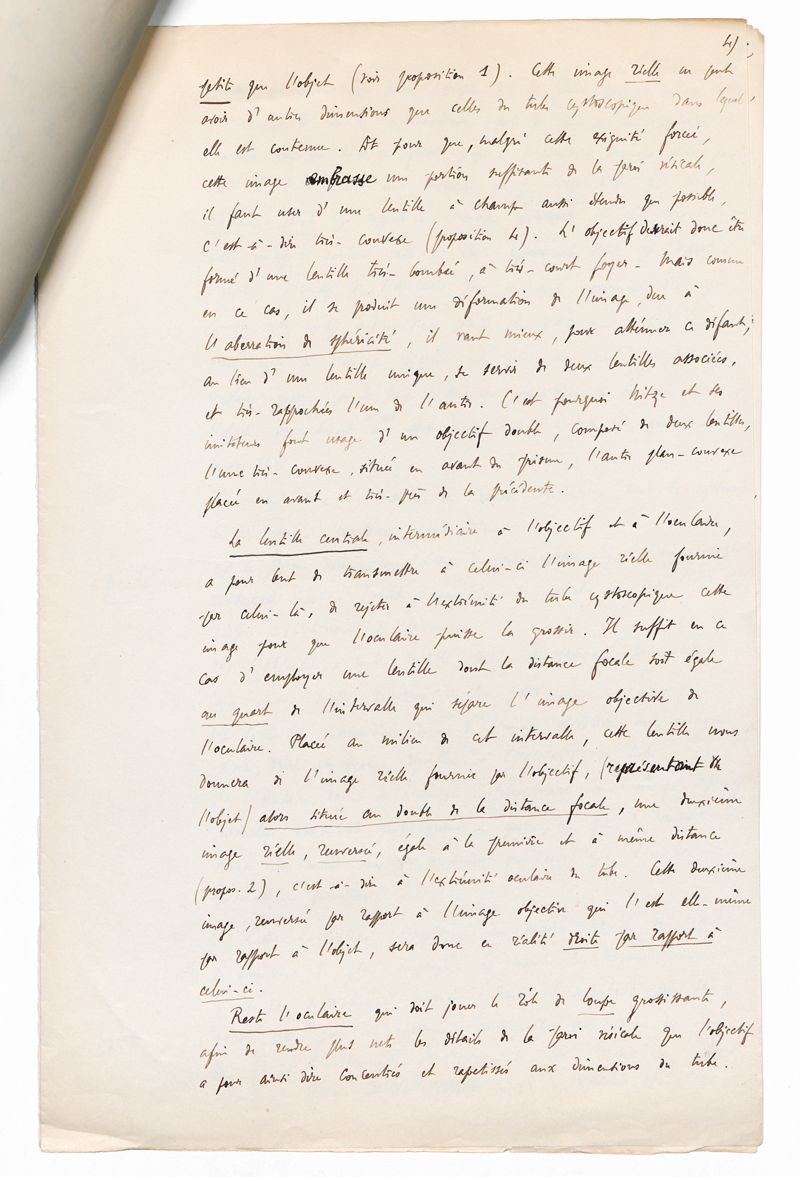 4).
petite que l'objet (voir proposition 1). Cette image réelle ne peut
avoir d'autres dimensions que celles du tube cystoscopique dans lequel
elle est contenue. Et pour que, malgré cette exiguité forcée,
cette image embrasse une portion suffisante de la paroi vésicale,
il faut user d'une lentille à champ aussi étendu que possible,
c'est-à-dire très-convexe (proposition 4). L'objectif devrait donc être
formé d'une lentille très-bombée, à très-court foyer - Mais comme
en ce cas, il se produit une déformation de l'image, due à
l'aberration de sphéricité, il vaut mieux, pour atténuer ce défaut,
au lieu d'une lentille unique, se servir de deux lentilles associées,
et très-rapprochées l'une de l'autre. C'est pourquoi Nitze et ses
imitateurs font usage d'un objectif double, composé de deux lentilles,
l'une très-convexe, située en avant du prisme, l'autre plan-convexe
placée en avant et très-près de la précédente.
La lentille centrale, intermédiaire à l'objectif et à l'oculaire,
a pour but de transmettre à celui-ci l'image réelle fournie
par celui-là, de rejeter à l'extrémité du tube cystoscopique cette
image pour que l'oculaire puisse la grossir. Il suffit en ce
cas d'employer une lentille dont la distance focale soit égale
au quart de l'intervalle qui sépare l'image objective de
l'oculaire. Placée au milieu de cet intervalle, cette lentille nous
donnera de l'image réelle fournie par l'objectif, (représentant de
l'objet) alors située au double de la distance focale, une deuxième
image réelle, renversée, égale à la première et à même distance
(propos. 2), c'est-à-dire à l'extrémité oculaire du tube. Cette deuxième
image, renversée par rapport à l'image objective qui l'est elle-même
par rapport à l'objet, sera donc en réalité droite par rapport à
celui-ci.
Reste l'oculaire qui doit jouer le rôle de loupe grossissante,
afin de rendre plus nets les détails de la paroi vésicale que l'objectif
a pour ainsi dire concentrés et rapetissés aux dimentions du tube.